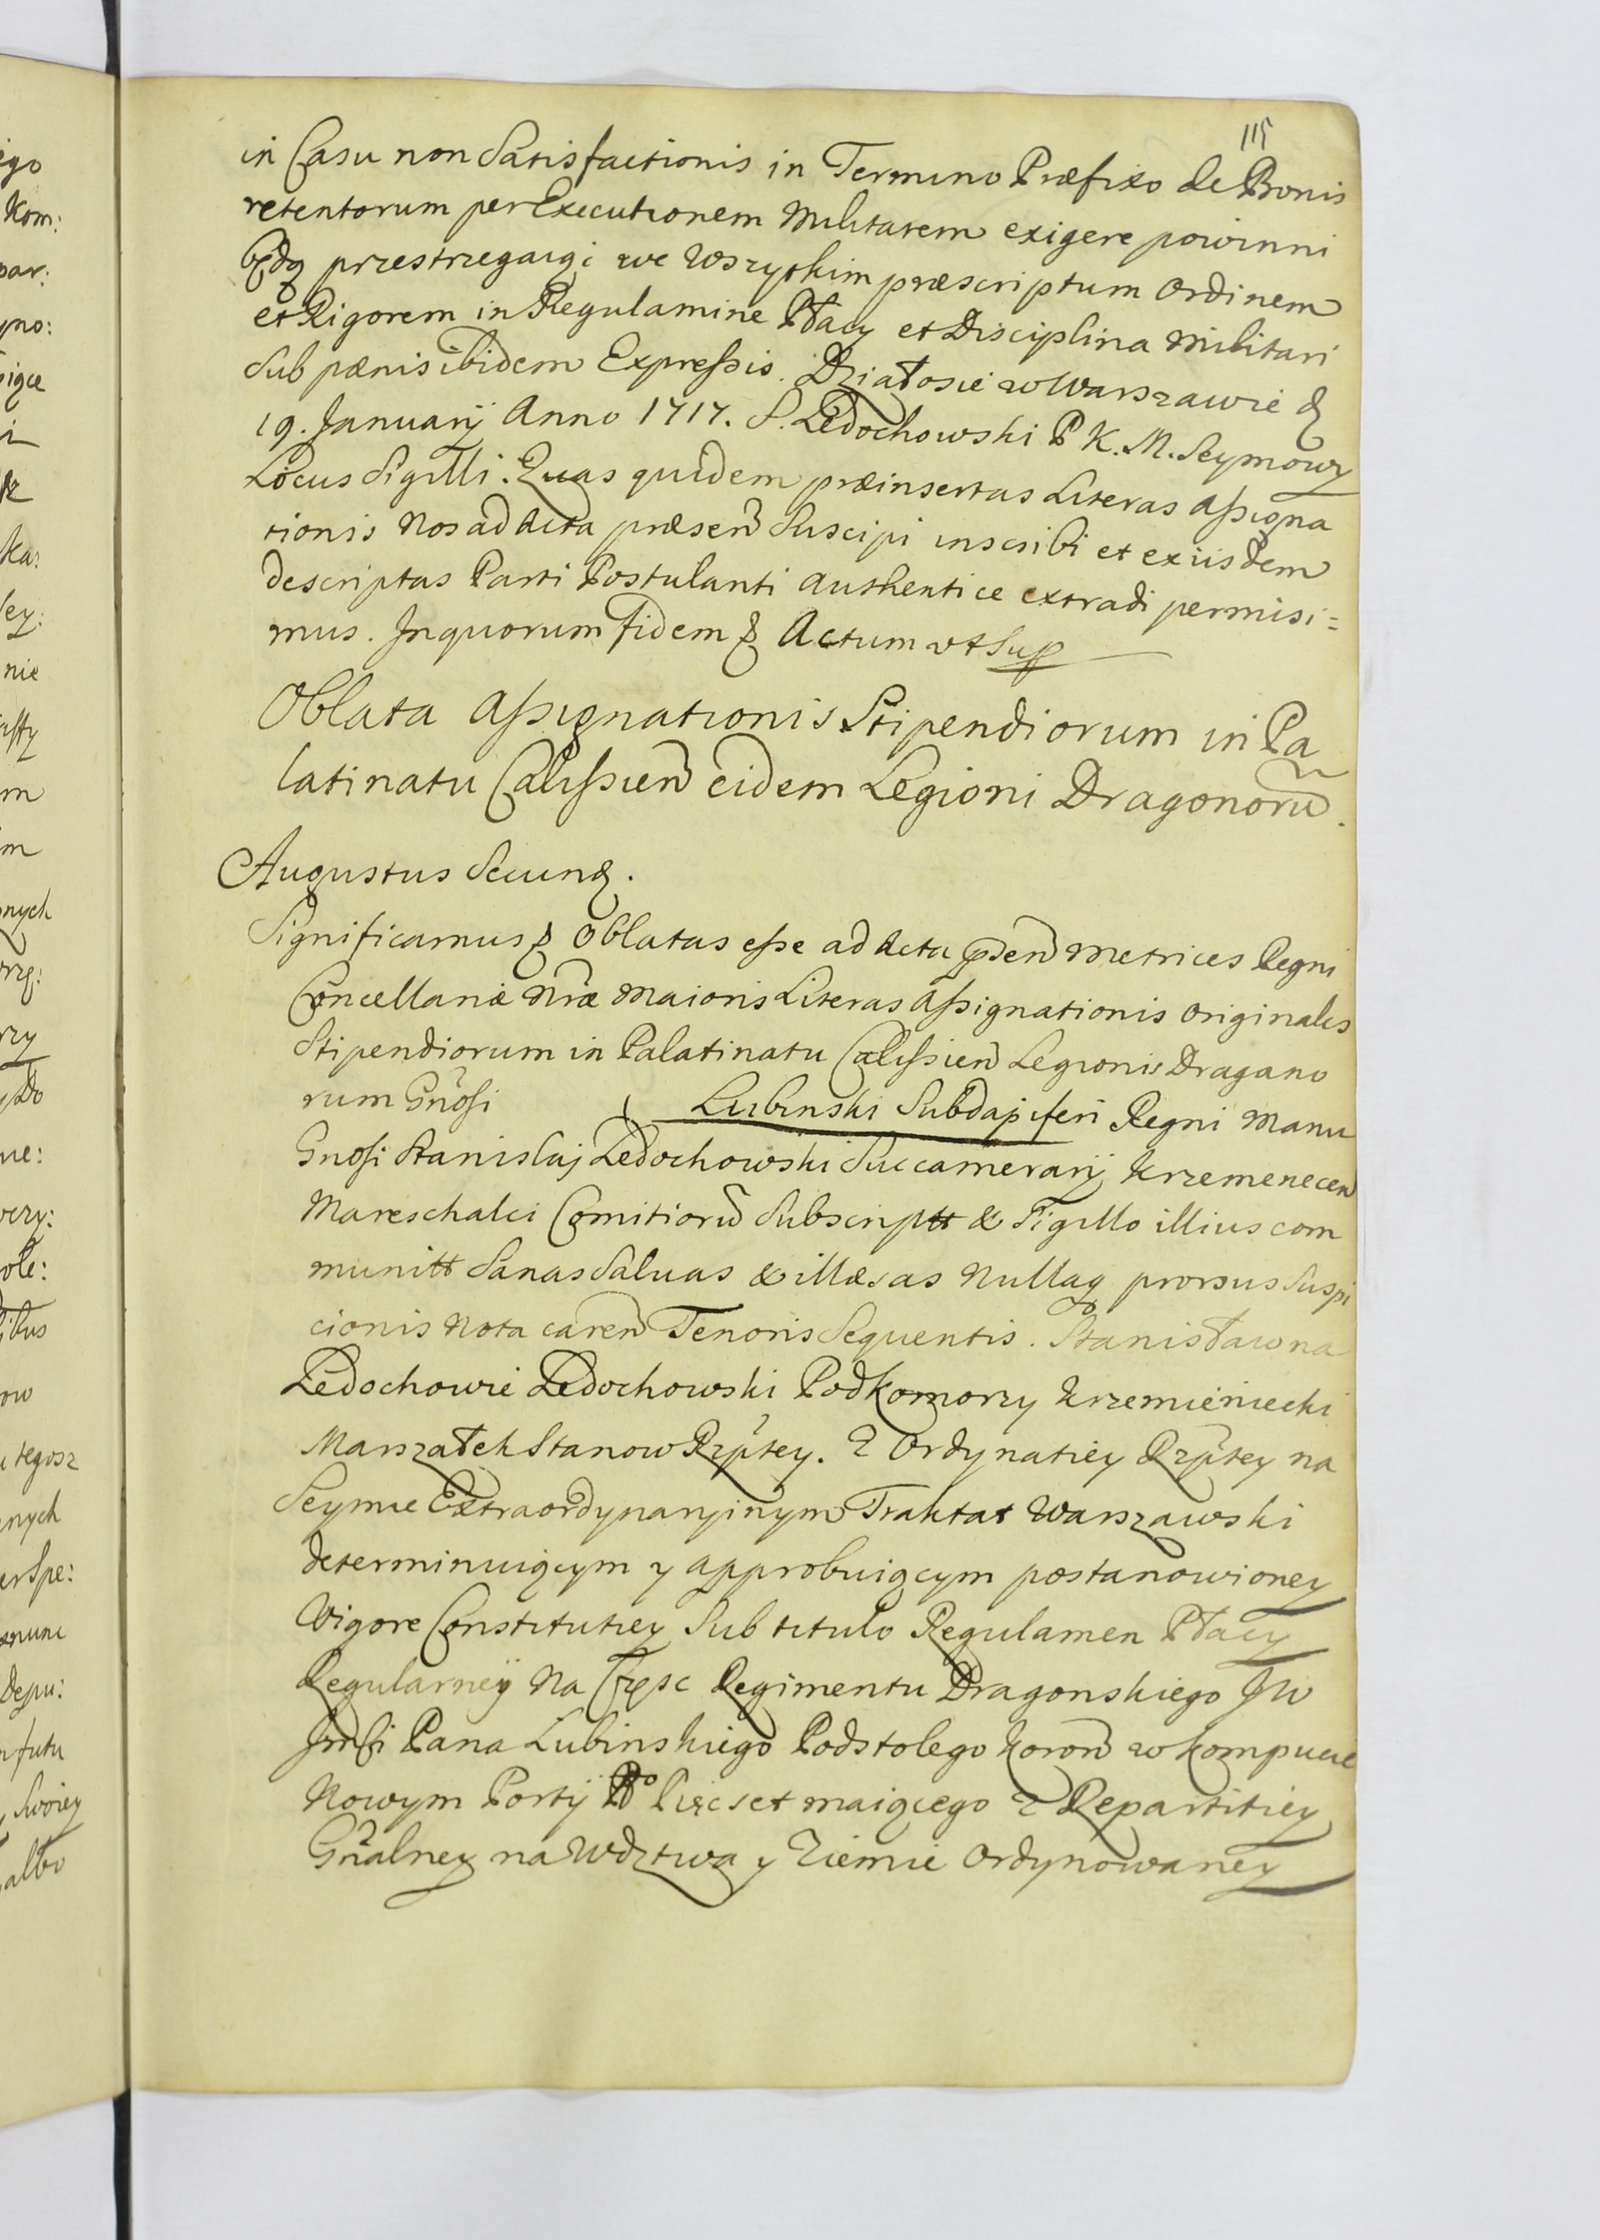 115
in Casu non Satisfactionis in Termino Præfixo de Bonis
retentorum per Executionem Militarem exigere powinni
będą przestrzegaiąc we Wszytkim præscriptum Ordinem
et Rigorem in Regulamine Płacy et Disciplina Militari
Sub pænis ibidem Expreſsis. Działosie w Warszawie d
19. Januarij Anno 1717. S. Ledochowski P K. M. Seymowy
Locus Sigilli. Quas quidem præinsertas Literas Aſsigna
tionis Nos ad Acta præsen Suscipi inscribi et exiisdem
descriptas Parti Postulanti Authentice extradi permisi=
mus. In quorum fidem & Actum ut Sup
Oblata Aſsignationis Stipendiorum in Pa
latinatu Caliſsien eidem Legioni Dragonorũ.
Augustus Secund.
Significamus & Oblatas eſse ad Acta pŝen Metrices Regni
Cancellariæ Nr̃æ Maioris Literas Aſsignationis Originales
Stipendiorum in Palatinatu Caliſsien Legionis Dragano
rum Gñosi Lubinski Subdapiferi Regni Manu
Gnosi Stanislaj Ledochowski Succamerarij Krzemenecen
Mareschalci Comitiorũ Subscriptt & Sigillo illius com
munitt Sanas Saluas & illæsas Nullaq prorsus Suspi
cionis Nota caren Tenoris Sequentis. Stanisław na
Ledochowie Ledochowski Podkomorzy Krzemieniecki
Marszałek Stanow Rzptey. Z Ordynatiey Rzptey na
Seymie Extraordynaryinym Traktat Warszawski
determinuiącym y approbuiącym postanowioney
Vigore Constitutiey Sub titulo Regulamen Płacy
Regularney Na Częsc Regimentu Dragonskiego JW
Jmſci Pana Lubinskiego Podstolego Koron w kompucie
Nowym Portij No Pięcset maiącego Z Repartitiey
Gñalney na Wdztwa y Ziemie Ordynowaney